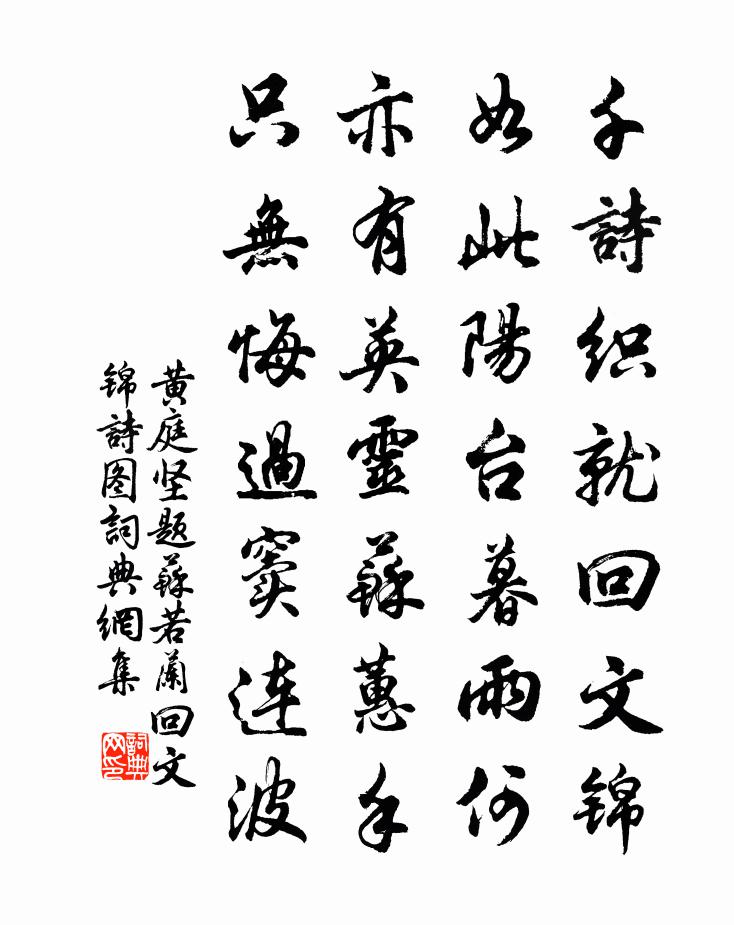 千詩織就回文锦
如此陽台暮雨何
亦有英靈蘇蕙手
只無悔過窦连波
黄庭坚题蘇若蘭回文
锦詩图詞典網集
詞典网印